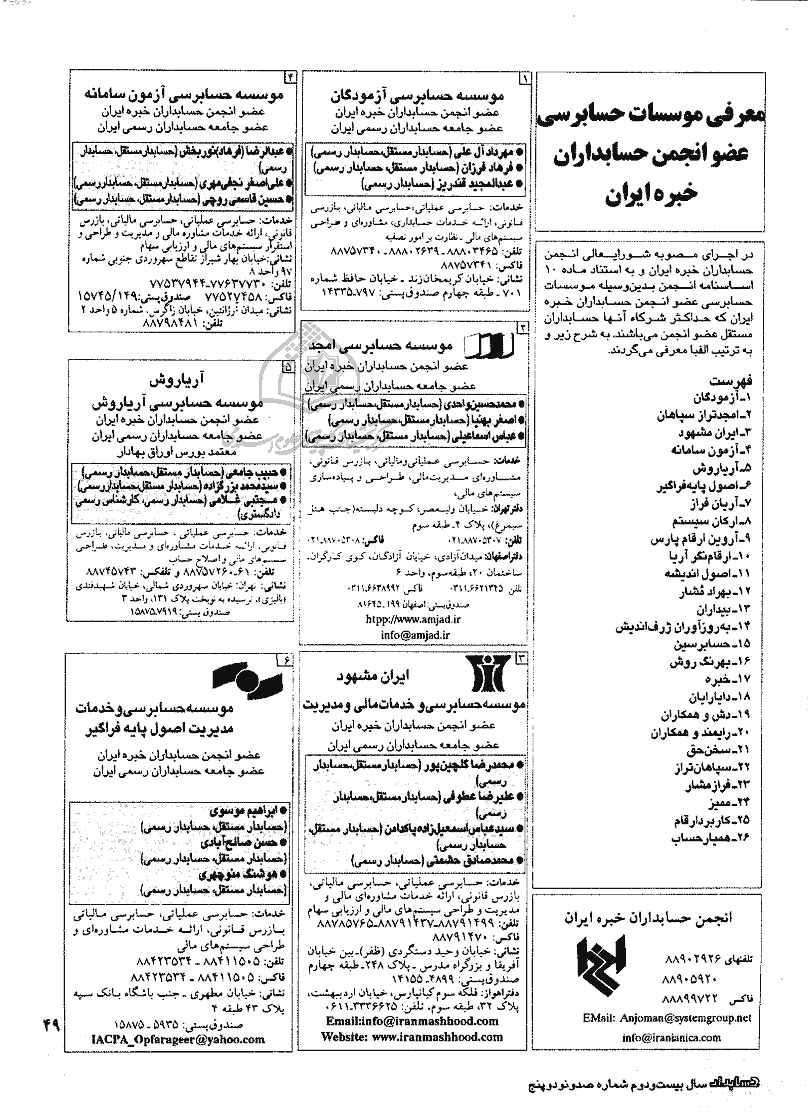 معرفی موسسات حسابرسی
عضو انجمن حسابداران
خبره ایران
در اجرای مصوبه شورایعالی انجمن
حسابداران خبره ایران و به استناد ماده ۱۰
اساسنامه انجمن بدین‌وسیله موسسات
حسابرسی عضو انجمن حسابداران خبره
ایران که حداکثر شرکاء آنها حسابداران
مستقل عضو انجمن می‌باشند، به شرح زیر و
به ترتیب الفبا معرفی می‌گردند.
فهرست
۱ـ آزمودگان
۲ـ امجدتراز سپاهان
۳ـ ایران مشهود
۴ـ آزمون سامانه
۵ـ آریاروش
۶ـ اصول پایه‌فراگیر
۷ـ آریان فراز
۸ـ ارکان سیستم
۹ـ آروین ارقام پارس
۱۰ـ ارقام‌نگر آریا
۱۱ـ اصول اندیشه
۱۲ـ بهراد مُشار
۱۳ـ بیداران
۱۴ـ به‌روزآوران ژرف‌اندیش
۱۵ـ حسابرسین
۱۶ـ بهرنگ روش
۱۷ـ خبره
۱۸ـ دایارایان
۱۹ـ دش و همکاران
۲۰ـ رایمند و همکاران
۲۱ـ سخن‌حق
۲۲ـ سپاهان‌تراز
۲۳ـ فراز مشار
۲۴ـ ممیز
۲۵ـ کاربرد ارقام
۲۶ـ همیارحساب
انجمن حسابداران خبره ایران
تلفنهای ۸۸۹۰۲۹۲۶
۸۸۹۰۵۹۲۰
فاکس ۸۸۸۹۹۷۲۲
EMail: Anjoman@systemgroup.net
info@iranianica.com
۱
موسسه حسابرسی آزمودگان
عضو انجمن حسابداران خبره ایران
عضو جامعه حسابداران رسمی ایران
● مهرداد آل علی (حسابدار مستقل، حسابدار رسمی)
● فرهاد فرزان (حسابدار مستقل، حسابدار رسمی)
● عبدالمجید قندریز (حسابدار رسمی)
خدمات: حسابرسی عملیاتی، حسابرسی مالیاتی، بازرسی
قانونی، ارائه خدمات حسابداری، مشاوره‌ای و طراحی
سیستم‌های مالی ـ نظارت بر امور تصفیه
تلفن: ۸۸۸۰۳۴۶۵ ـ ۸۸۸۰۲۶۳۹ ـ ۸۸۷۵۷۳۴۰
فاکس: ۸۸۷۵۷۳۴۱
نشانی: خیابان کریمخان‌زند ـ خیابان حافظ شماره
۷۰۱ ـ طبقه چهارم صندوق‌پستی: ۷۹۷ـ۱۴۳۳۵
۲
موسسه حسابرسی امجد
عضو انجمن حسابداران خبره ایران
عضو جامعه حسابداران رسمی ایران
● محمدحسین واحدی (حسابدار مستقل، حسابدار رسمی)
● اصغر بهنیا (حسابدار مستقل، حسابدار رسمی)
● عباس اسماعیلی (حسابدار مستقل، حسابدار رسمی)
خدمات: حسابرسی عملیاتی‌ومالیاتی، بازرس قانونی،
مشاوره‌ای مدیریت‌مالی، طراحی و پیاده‌سازی
سیستم‌های مالی،
دفترتهران: خیابان ولیعصر، کوچه دلبسته(جنب هتل
سیمرغ)، پلاک ۴ـ طبقه سوم
تلفن: ۸۸۷۰۵۳۰۷ـ۰۲۱ فاکس: ۸۸۷۰۵۳۰۸ـ۰۲۱
دفتراصفهان: میدان‌آزادی، خیابان آزادگان، کوی کارگران،
ساختمان ۲۰، طبقه‌سوم، واحد ۶
تلفن ۶۶۲۱۳۲۵ـ۰۳۱۱ فاکس ۶۶۳۸۹۹۲ـ۰۳۱۱
صندوق‌پستی: اصفهان ۱۹۹ـ۸۱۶۴۵
htpp://www.amjad.ir
info@amjad.ir
۳
ایران مشهود
موسسه حسابرسی و خدمات مالی و مدیریت
عضو انجمن حسابداران خبره ایران
عضو جامعه حسابداران رسمی ایران
● محمدرضا گلچین‌پور (حسابدار مستقل، حسابدار
رسمی)
● علیرضا عطوفی (حسابدار مستقل، حسابدار
رسمی)
● سیدعباس اسمعیل‌زاده پاکدامن (حسابدار مستقل،
حسابدار رسمی)
● محمدصادق حشمتی (حسابدار رسمی)
خدمات: حسابرسی عملیاتی، حسابرسی مالیاتی،
بازرس قانونی، ارائه خدمات مشاوره‌ای مالی و
مدیریت و طراحی سیستم‌های مالی و ارزیابی سهام
تلفن: ۸۸۷۹۱۴۹۹ـ۸۸۷۹۱۴۳۷ـ۸۸۷۸۵۷۶۵
فاکس: ۸۸۷۹۱۴۷۰
نشانی: خیابان وحید دستگردی (ظفر)ـ بین خیابان
آفریقا و بزرگراه مدرس ـ پلاک ۲۴۸ـ طبقه چهارم
صندوق‌پستی: ۴۸۹۹ـ۱۴۱۵۵
دفتراهواز: فلکه سوم کیانپارس، خیابان اردیبهشت،
پلاک ۳۲، طبقه سوم، تلفن: ۳۳۳۶۶۲۵ـ۰۶۱۱
Email:info@iranmashhood.com
Website: www.iranmashhood.com
۴
موسسه حسابرسی آزمون سامانه
عضو انجمن حسابداران خبره ایران
عضو جامعه حسابداران رسمی ایران
● عبدالرضا (فرهاد) نوربخش (حسابدار مستقل، حسابدار
رسمی)
● علی‌اصغر نجفی‌مهری (حسابدار مستقل، حسابداررسمی)
● حسین قاسمی روچی (حسابدار مستقل، حسابدار رسمی)
خدمات: حسابرسی عملیاتی، حسابرسی مالیاتی، بازرس
قانونی، ارائه خدمات مشاوره مالی و مدیریت و طراحی و
استقرار سیستم‌های مالی و ارزیابی سهام
نشانی: خیابان بهار شیراز تقاطع سهروردی جنوبی شماره
۹۷ واحد ۸
تلفن: ۷۷۶۳۷۷۳۰ـ ۷۷۵۳۷۹۴۴
فاکس: ۷۷۵۲۷۴۵۸ صندوق‌پستی: ۱۵۷۴۵/۱۴۹
نشانی: میدان آرژانتین، خیابان زاگرس، شماره ۵ واحد ۲
تلفن: ۸۸۷۹۸۴۸۱
۵
آریاروش
موسسه حسابرسی آریاروش
عضو انجمن حسابداران خبره ایران
عضو جامعه حسابداران رسمی ایران
معتمد بورس اوراق بهادار
● حبیب جامعی (حسابدار مستقل، حسابدار رسمی)
● سیدمحمد بزرگزاده (حسابدار مستقل، حسابداررسمی)
● مجتبی غلامی (حسابدار رسمی، کارشناس رسمی
دادگستری)
خدمات: حسابرسی عملیاتی، حسابرسی مالیاتی، بازرس
قانونی، ارائه خدمات مشاوره‌ای و مدیریت، طراحی
سیستم‌های مالی و اصلاح حساب
تلفن: ۶۱ـ۸۸۷۵۷۲۶۰ و تلفکس: ۸۸۷۴۵۷۴۳
نشانی: تهران: خیابان سهروردی شمالی، خیابان شهیدقندی
(پالیزی)، نرسیده به نوبخت پلاک ۱۳۱، واحد ۳
صندوق پستی: ۷۹۱۹ـ۱۵۸۷۵
۶
موسسه حسابرسی و خدمات
مدیریت اصول پایه فراگیر
عضو انجمن حسابداران خبره ایران
عضو جامعه حسابداران رسمی ایران
● ابراهیم موسوی
(حسابدار مستقل، حسابدار رسمی)
● حسن صالح‌آبادی
(حسابدار مستقل، حسابدار رسمی)
● هوشنگ منوچهری
(حسابدار مستقل، حسابدار رسمی)
خدمات: حسابرسی عملیاتی، حسابرسی مالیاتی
بازرس قانونی، ارائه خدمات مشاوره‌ای و
طراحی سیستم‌های مالی
تلفن: ۸۸۴۱۱۵۰۵ ـ ۸۸۴۲۳۵۳۴
فاکس: ۸۸۴۱۱۵۰۵ ـ ۸۸۴۲۳۵۳۴
نشانی: خیابان مطهری ـ جنب باشگاه بانک سپه
پلاک ۴۳ طبقه ۴
صندوق‌پستی: ۵۹۳۵ـ ۱۵۸۷۵
IACPA_Opfarageer@yahoo.com
۴۹
حسابدار سال بیست‌ودوم شماره صدونودوپنج